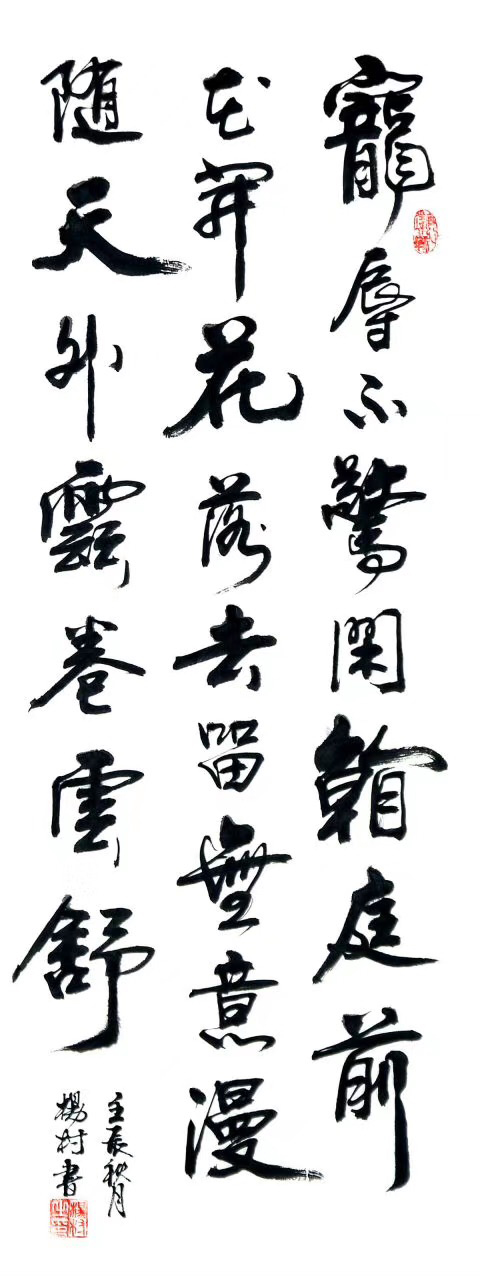 寵辱不驚閑看庭前
花開花落去留無意漫
随天外雲卷雲舒
壬辰秋月
楊村書